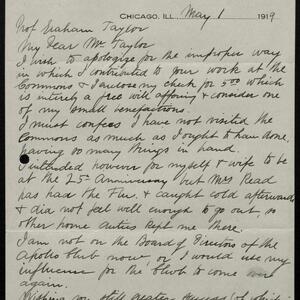 CHICAGO, ILL. May 1 1919
Prof Graham Taylor
My Dear Mr Taylor
I wish to apologize for the improper way
in which I contributed to your work at the
Commons & I enclose my check for 5.00 which
is entirely a free will offering & consider one
of my small benefactions
I must confess I have not visited the
Commons as much as I ought to have done,
having so many things in hand
I intended however for myself & wife to be
at the 25th Anniversary but Mrs Read
has had the Flu, & caught cold afterwards
& did not feel well enough to go out, so
other home duties kept me there.
I am not on the Board of Directors of the
Apollo Club now, or I would use my
influence for the Club to come over
again.
Wishing you still greater success